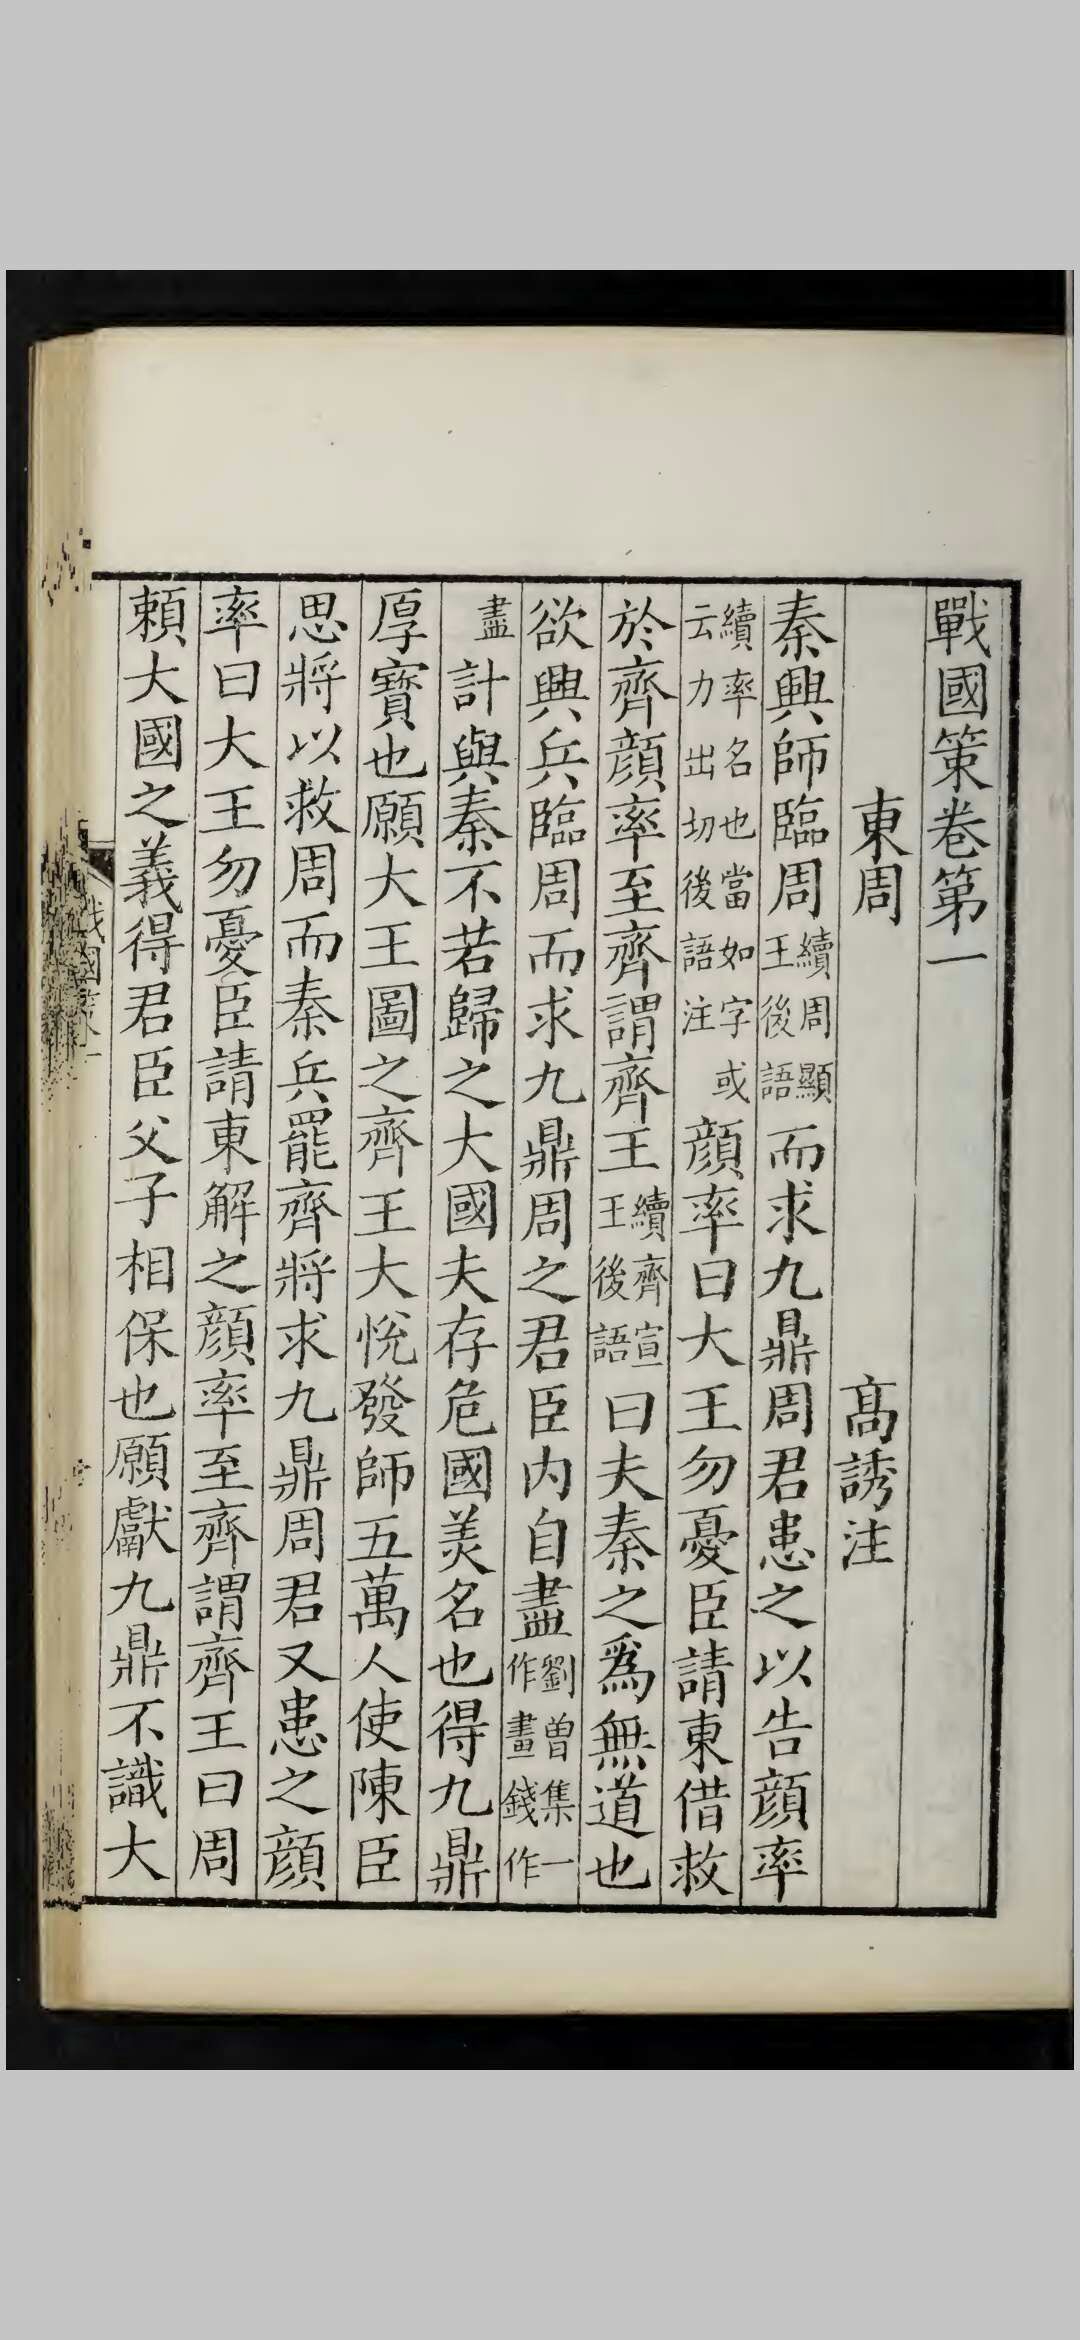 戰國策卷第一
東周　高誘注
秦興師臨周續周顯王後語而求九鼎周君患之以告顔率
續率名也當如字或云力出切後語注顔率曰大王勿憂臣請東借救
於齊顔率至齊謂齊王續齊宣王後語曰夫秦之爲無道也
欲興兵臨周而求九鼎周之君臣内自盡劉曾集一作畫錢作
盡計與秦不若歸之大國夫存危國美名也得九鼎
厚寳也願大王圖之齊王大悅發師五萬人使陳臣
思將以救周而秦兵罷齊將求九鼎周君又患之顔
率曰大王勿憂臣請東解之顔率至齊謂齊王曰周
頼大國之義得君臣父子相保也願獻九鼎不識大
戰國策一